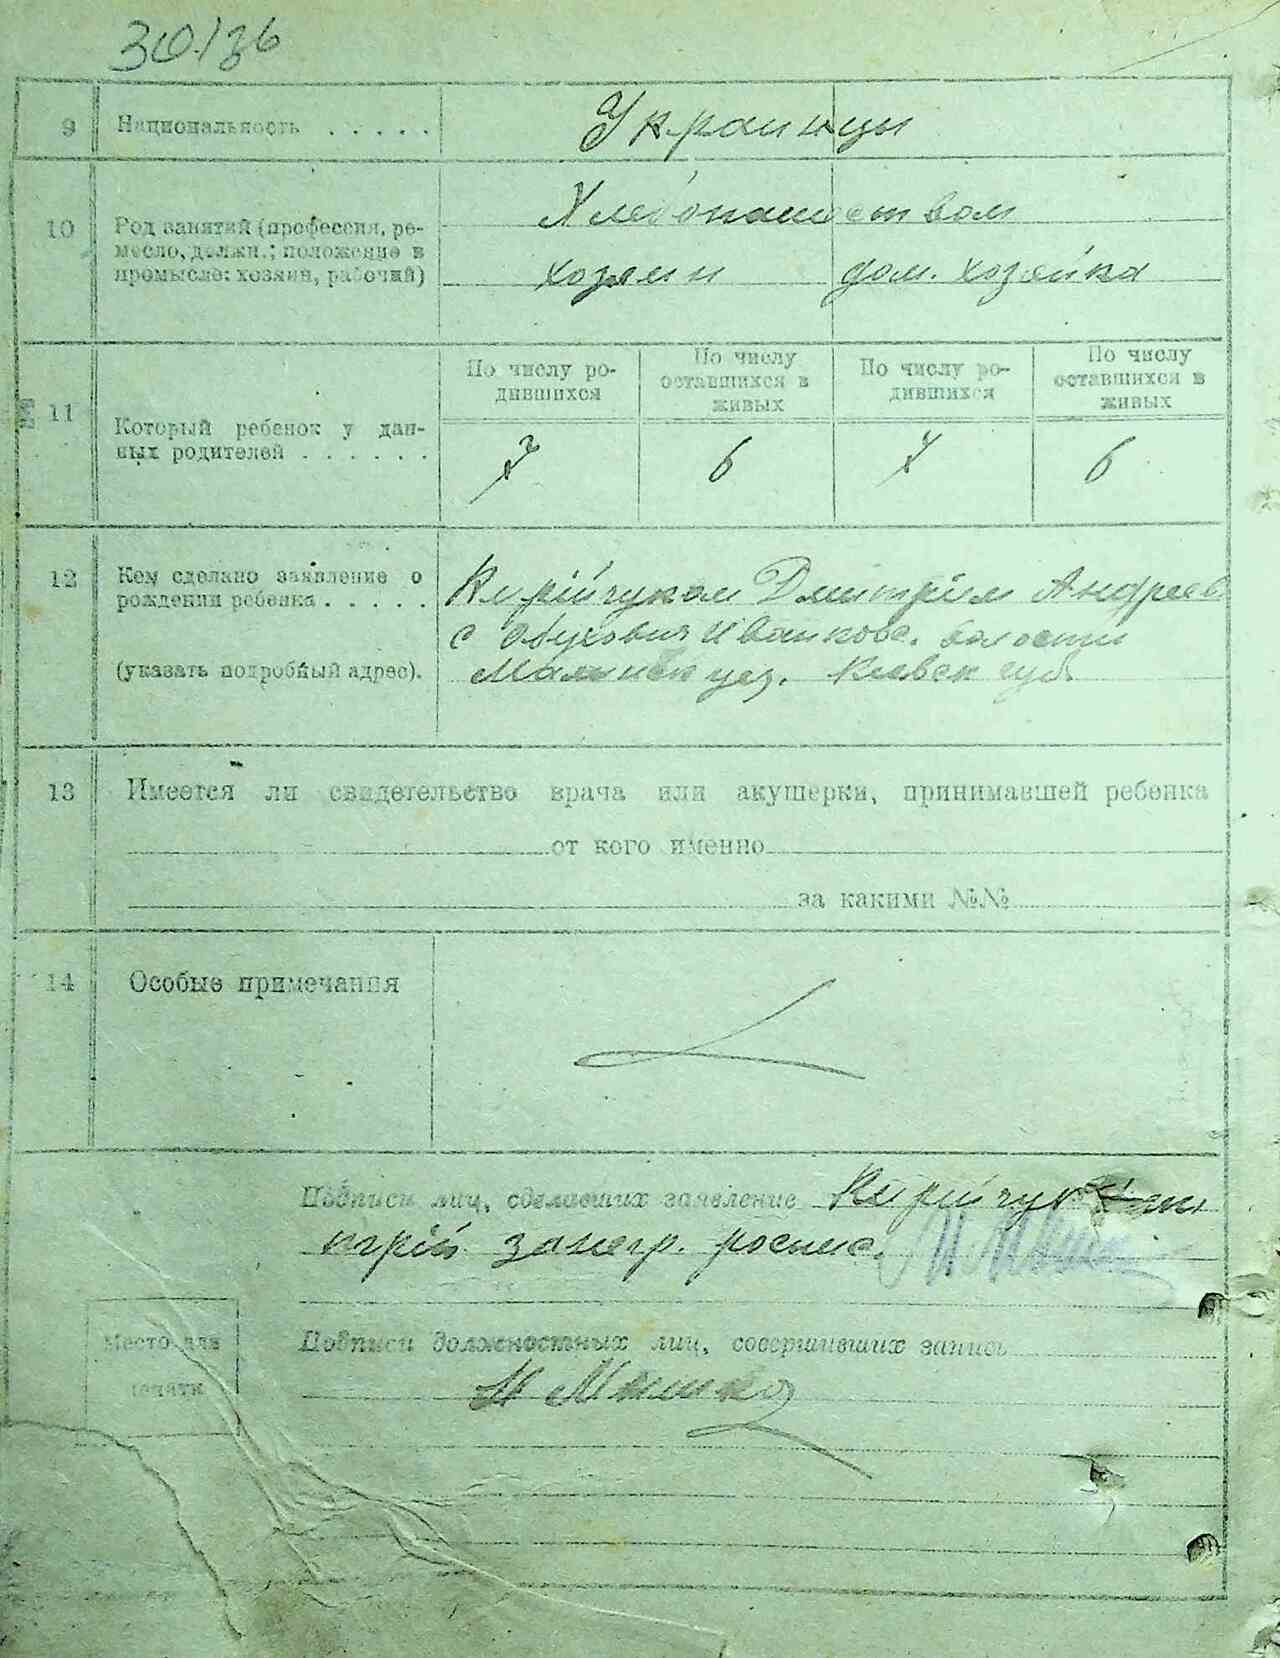 9 Национальность . . . . . Украинцы
10 Род занятий (профессия, ре-
месло, должн.; положение в
промысле: хозяин, рабочий)
Хлебопашеством
хозяин дом. хозяйка
11 Который ребенок у дан-
ных родителей . . . . . .
По числу ро-
дившихся
По числу
оставшихся в
живых
По числу ро-
дившихся
По числу
оставшихся в
живых
7 6 7 6
12 Кем сделано заявление о
рождении ребенка . . . . .
(указать подробный адрес).
Кирійчуком Дмитрієм Андреев
с Обуховичи Иванков. волости
уез. Киевск губ.
13 Имеется ли свидетельство врача или акушерки, принимавшей ребенка
от кого именно
за какими №№
14 Особые примечания
Подписи лиц, сделавших заявление Кирійчук
негр. роспис.
Место для
печати
Подписи должностных лиц, совершивших запись